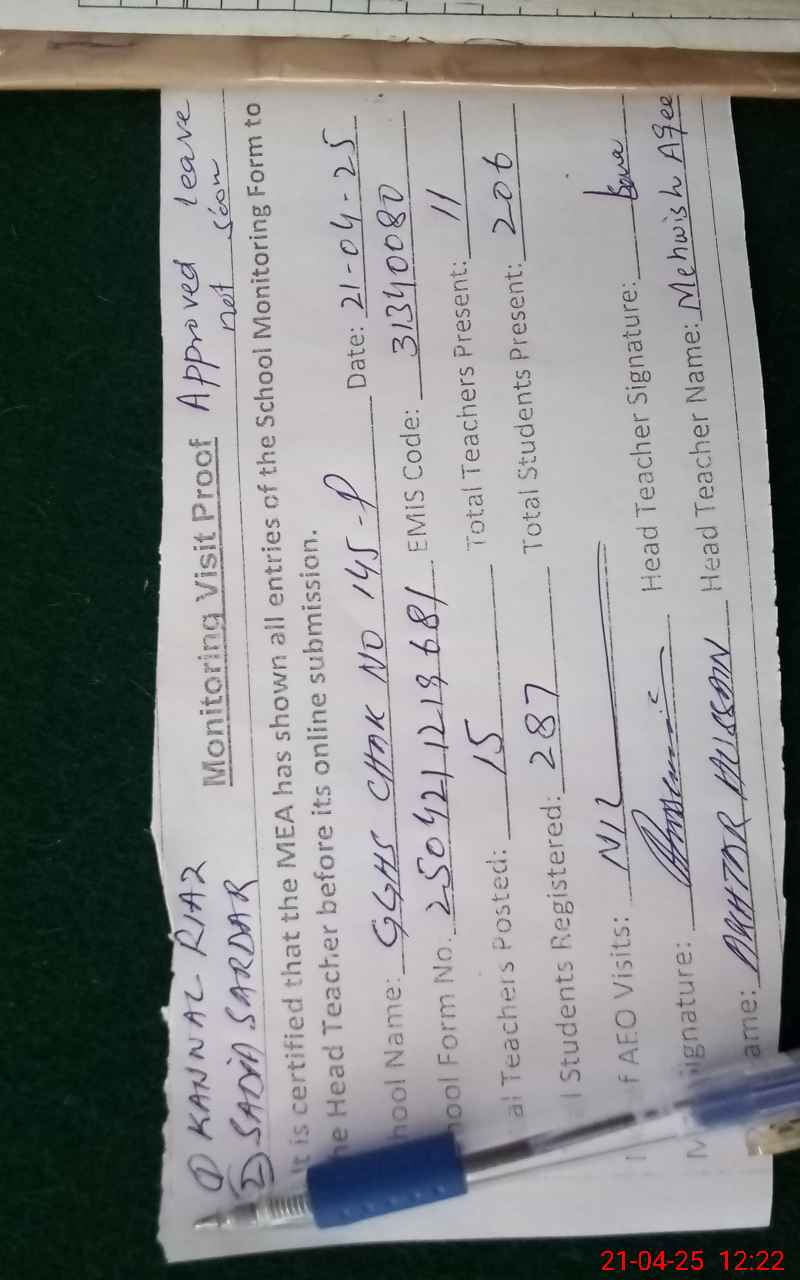 ① KANWAL RIAZ
② SADIA SARDAR
Approved leave
not seen
Monitoring Visit Proof
It is certified that the MEA has shown all entries of the School Monitoring Form to
he Head Teacher before its online submission.
hool Name: GGHS CHAK NO 145-P Date: 21-04-25
hool Form No. 250421121968/ EMIS Code: 31340080
al Teachers Posted: 15 Total Teachers Present: 11
l Students Registered: 287 Total Students Present: 206
f AEO Visits: NIL
ignature: Head Teacher Signature:
ame: AKHTAR HUSSAIN Head Teacher Name: Mehwish Aqee
21-04-25 12:22